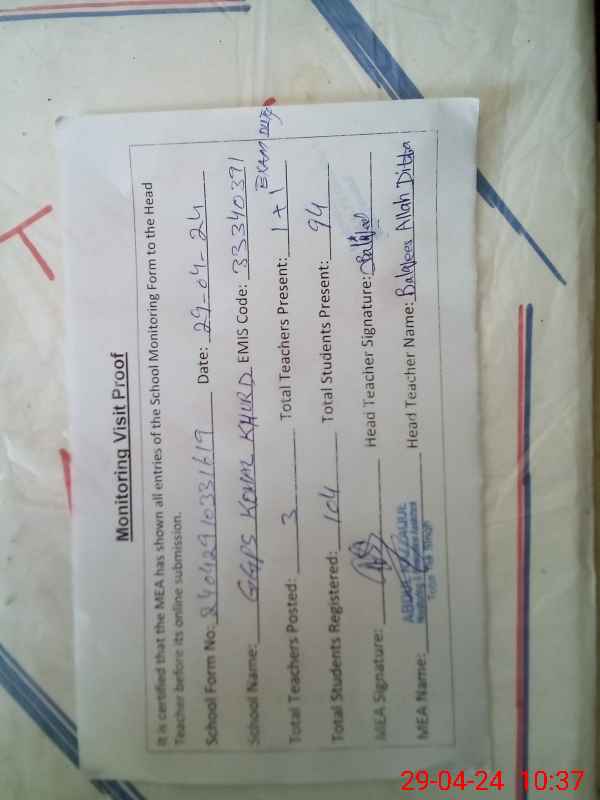 Monitoring Visit Proof
It is certified that the MEA has shown all entries of the School Monitoring Form to the Head
Teacher before its online submission.
School Form No: 24042910331619 Date: 29-04-24
School Name: GGPS KEWAL KHURD EMIS Code: 33340391
Total Teachers Posted: 3 Total Teachers Present: 1+1 EXAM Duty
Total Students Registered: 104 Total Students Present: 94
MEA Signature: Head Teacher Signature:
MEA Name: ABDUL Head Teacher Name: Balqees Allah Ditta
29-04-24 10:37